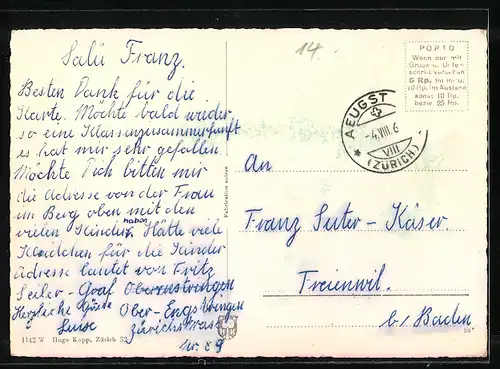 Salü Franz.
Besten Dank für die
Karte. Möchte bald wieder
so eine Klassenzusammenkunft
es hat mir sehr gefallen
Möchte Dich bitten mir
die Adresse von der Frau
im Berg oben mit den
vielen Kinder. Hätte viele
Kleidchen für die Kinder
Adresse lautet von Fritz
Seiler - Graf
Herzliche Grüsse Ober-Engstringen
Luise Zürichstrasse
Nr. 89
1142 W Hugo Kopp, Zürich 32
14.
PORTO
Wenn nur mit
Gruss u. Unter-
schrift
5 Rp. im
10 Rp. im Ausland
sonst 10 Rp.
bezw 25 Rp.
AEUGST
-4.VIII.6
VIII
(ZÜRICH)
An
Franz Suter-Käser
Freienwil.
b/ Baden